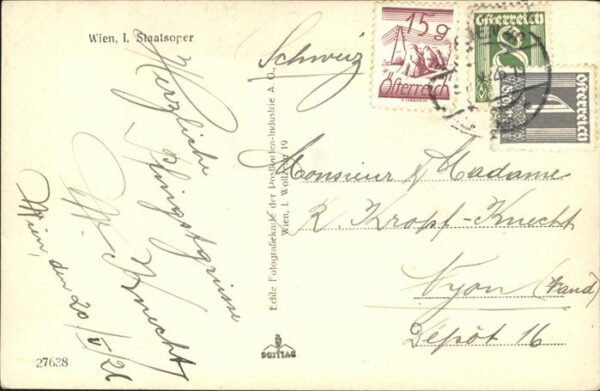 Wien, I. Staatsoper
Herzliche
Pfingstgrüsse
W. Knecht
Wien, den 20/V 26
27638
Echte Fotografiekarte der Postkarten-Industrie A. G.,
Wien, I. Wollzeile 19
POSTIAG
Schweiz
15 g
Österreich
Österreich
8
Österreich
1
Monsieur & Madame
R. Kropf-Knecht
Nyon (Vaud)
Dépôt 16